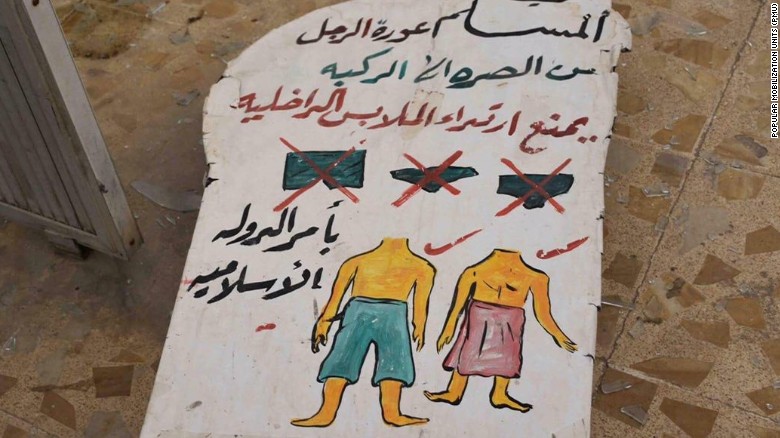 المسلم عورة الرجل
من الصره الى الركبه
يمنع ارتداء الملابس الداخليه
بأمر الدوله
الأسلاميه
POPULAR MOBILIZATION UNITS (PMU)